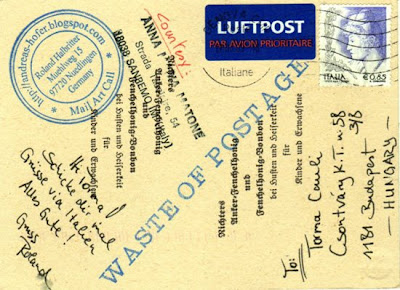 http://andreas-hofer.blogspot.com
Roland Halbritter
97720 Nüdlingen
Germany
Mail Art Call
Control:
ANNA MATONE
Strada
54
18038 SANREMO IM
LUFTPOST
PAR AVION PRIORITAIRE
Italiane
ITALIA
€0,65
WASTE OF POSTAGE
Richters
Anker-Fenchelhonig
Fenchelhonig-Bonbon
bei Husten und Heiserkeit
für
Kinder und Erwachsene
Richters
Anker-Fenchelhonig
und
Fenchelhonig-Bonbon
bei Husten und Heiserkeit
für
Kinder und Erwachsene
Schicke dir mal
Grüsse via Italien
Alles Gute!
Gruss
Roland
To:
Torma Cauli
Csontváry K.T. u 58
3/8
1181 Budapest
- HUNGARY -